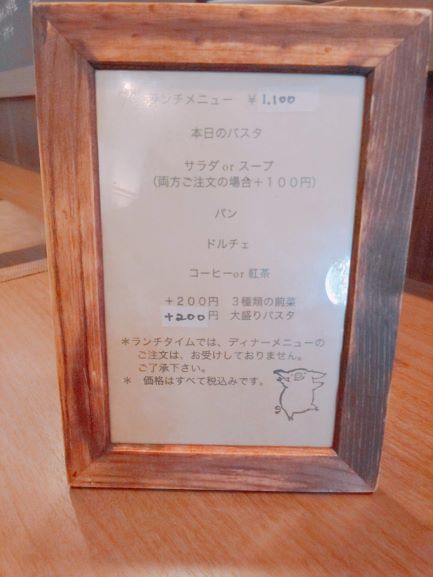 ランチメニュー ￥1,100
本日のパスタ
サラダ or スープ
（両方ご注文の場合＋１００円）
パン
ドルチェ
コーヒーor 紅茶
＋２００円　３種類の前菜
+200円　大盛りパスタ
＊ランチタイムでは、ディナーメニューの
ご注文は、お受けしておりません。
ご了承下さい。
＊　価格はすべて税込みです。